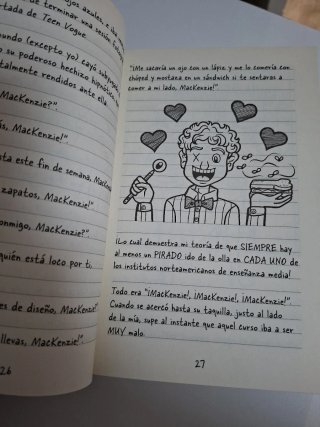 ojos azules, e iba
de terminar una sesión
rtada de Teen Vogue
undo (excepto yo) cayó
su poderoso hechizo
talmente rendidos ante ella
MacKenzie?".
ás, MacKenzie!"
sta este fin de semana, MacKenzie
zapatos, MacKenzie!"
onmigo, MacKenzie?"
quién está loco por ti,
es de diseño, MacKenzie!"
llevas, MacKenzie!"
26
"¡Me sacaría un ojo con un lápiz y me lo comería con
chóped y mostaza en un sándwich si te sentaras a
comer a mi lado, MacKenzie!"
¡Lo cual demuestra mi teoría de que SIEMPRE hay
al menos un PIRADO ido de la olla en CADA UNO de
los institutos norteamericanos de enseñanza media!
Todo era "¡MacKenzie!, ¡MacKenzie!, ¡MacKenzie!".
Cuando se acercó hasta su taquilla, justo al lado
de la mía, supe al instante que aquel curso iba a ser
MUY malo.
27